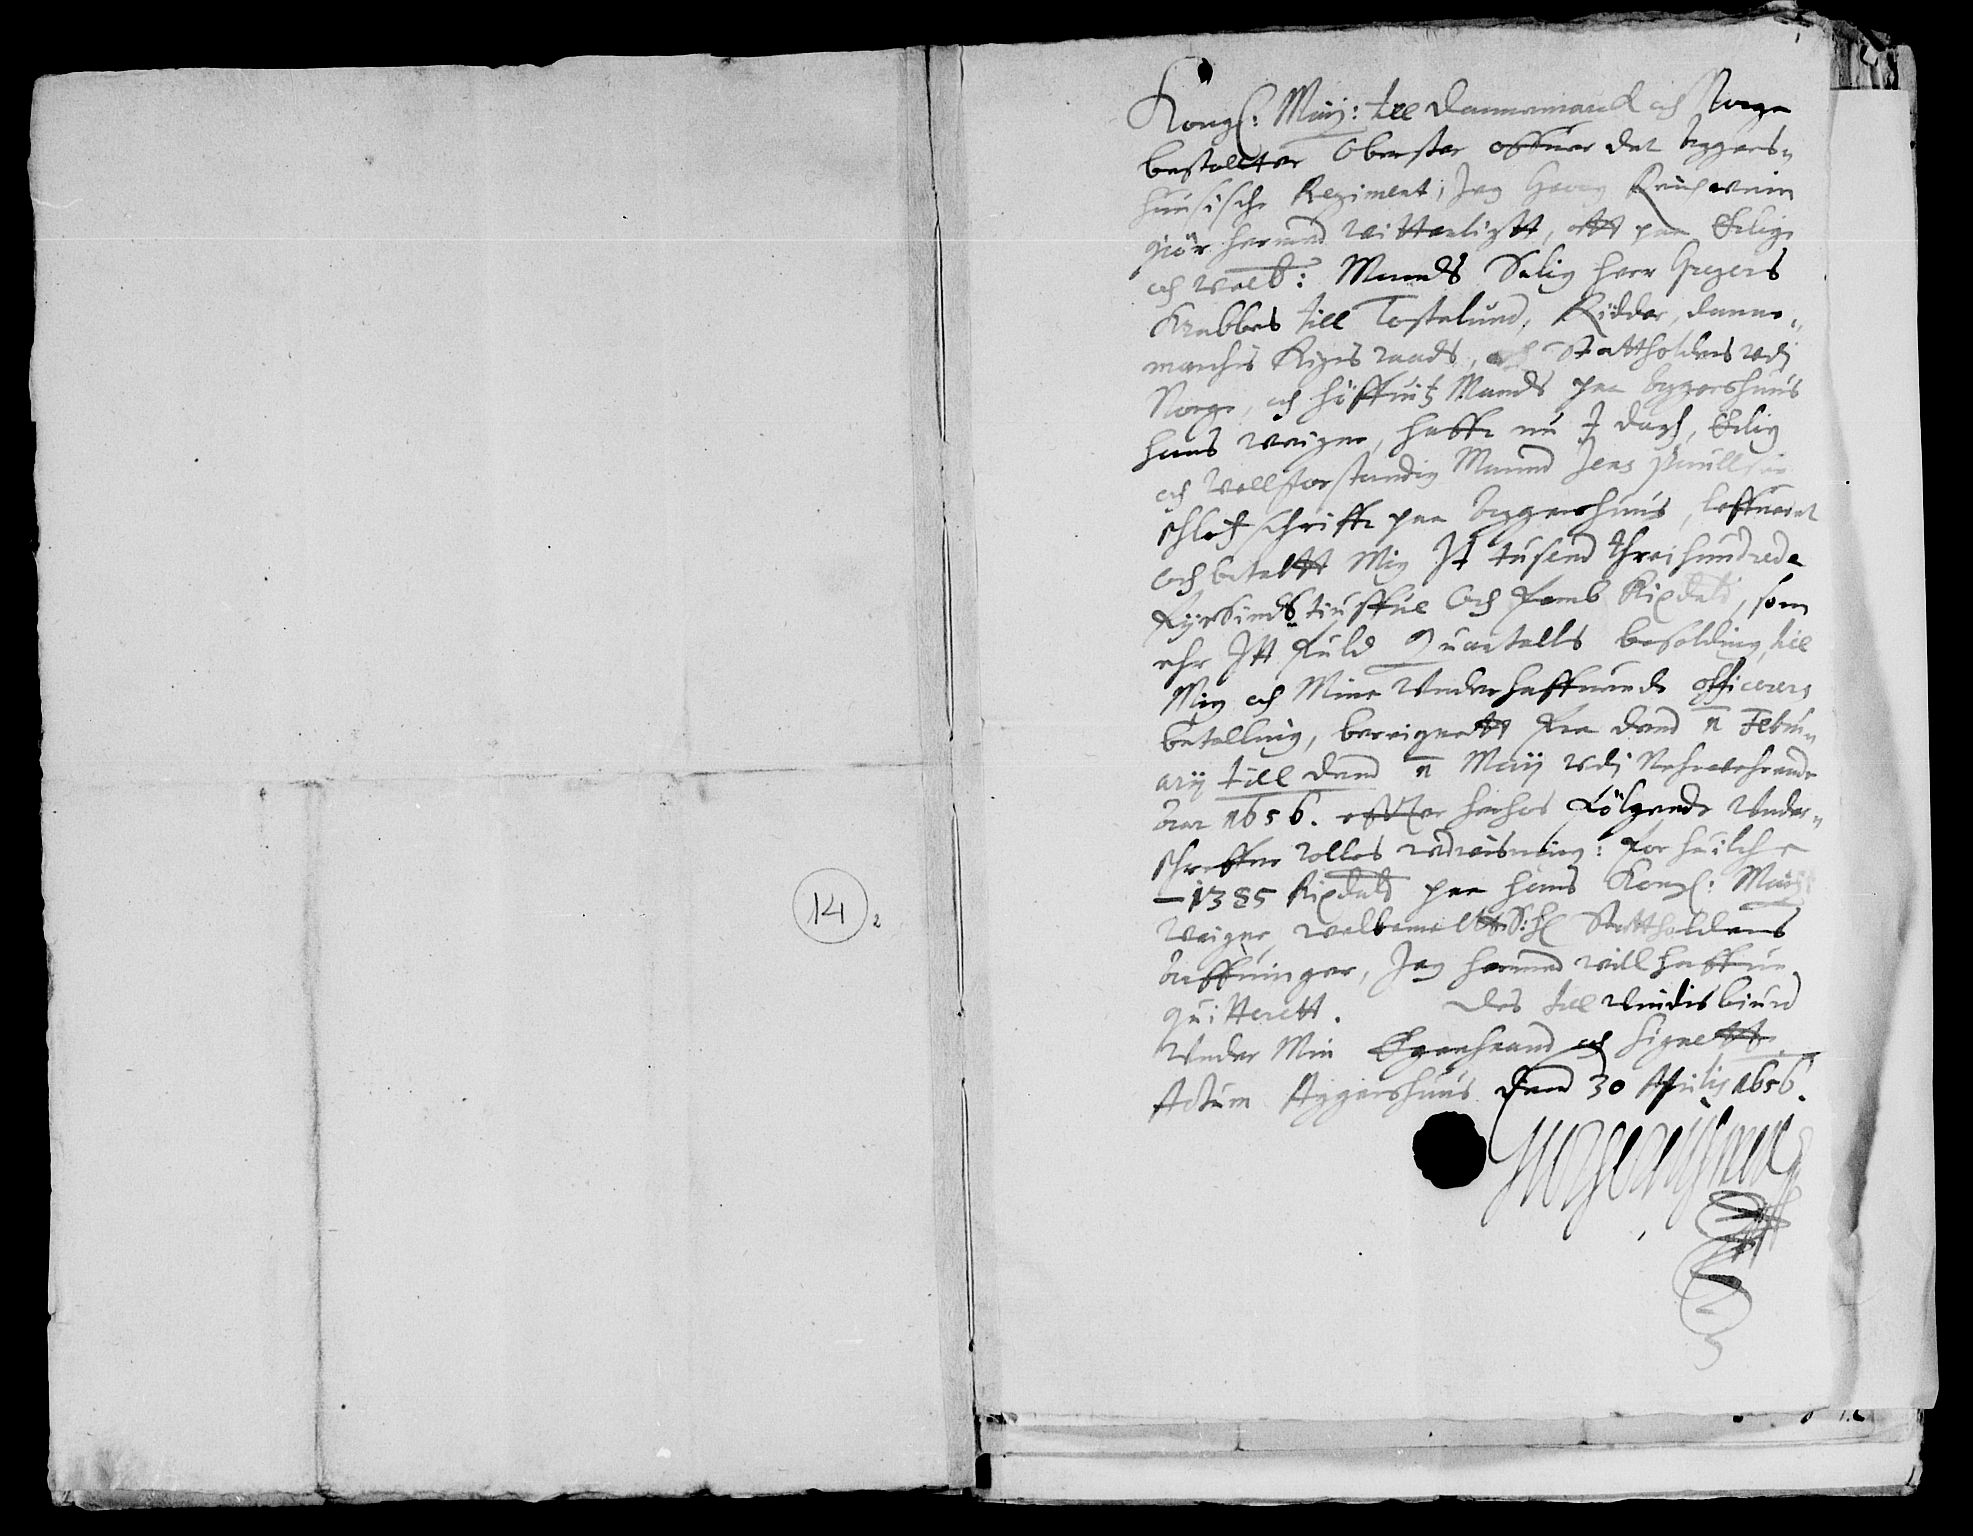 Kongl: Maÿ: till Dannemarck och Norge
bestallter Oberster offuer det Aggers-
huusische Regiment, Jeg Georg Reichwein
giör hermed Vitterligtt, att paa Erlig
och Welb: Mands Salig herr Gregers
Krabbes till Tostelund, Ridder, Danne-
marchis Rigis raads, och Stattholders vdj
Norge, och höffuitz Mands paa Aggershuus
hans weigne, haffr nu J dagh, Erlig
och Vellforstandig Mannd Jens Poulls
schlotzschriffr paa Aggershuus, leffueret
och betaltt Mig Jt tusend threi hundrede
Fyrsinds tiuffue Och Femb Rixdalr, som
ehr Jtt Fuld Quartalls besolding, till
Mig och Mine Underhaffuende officerers
betalling, bereignett Fra dend 1 Febru-
arij till dend 1 Maÿ vdj Nehrverende
Aar 1656. effter herhos Fölgende Under-
schreffne Rolles vdvisning: For huilche
1385 Rixdalr paa hans Kongl: Maÿ:
Weigne welbemeltte S: hr Stattholders
Arffuinger, Jeg hermed will haffue
quitterett. Des till Vindisbiurd
Under Min Egenhaand och Signett.
Actum Aggershuus Dend 30 Aprilis 1656.
14
2